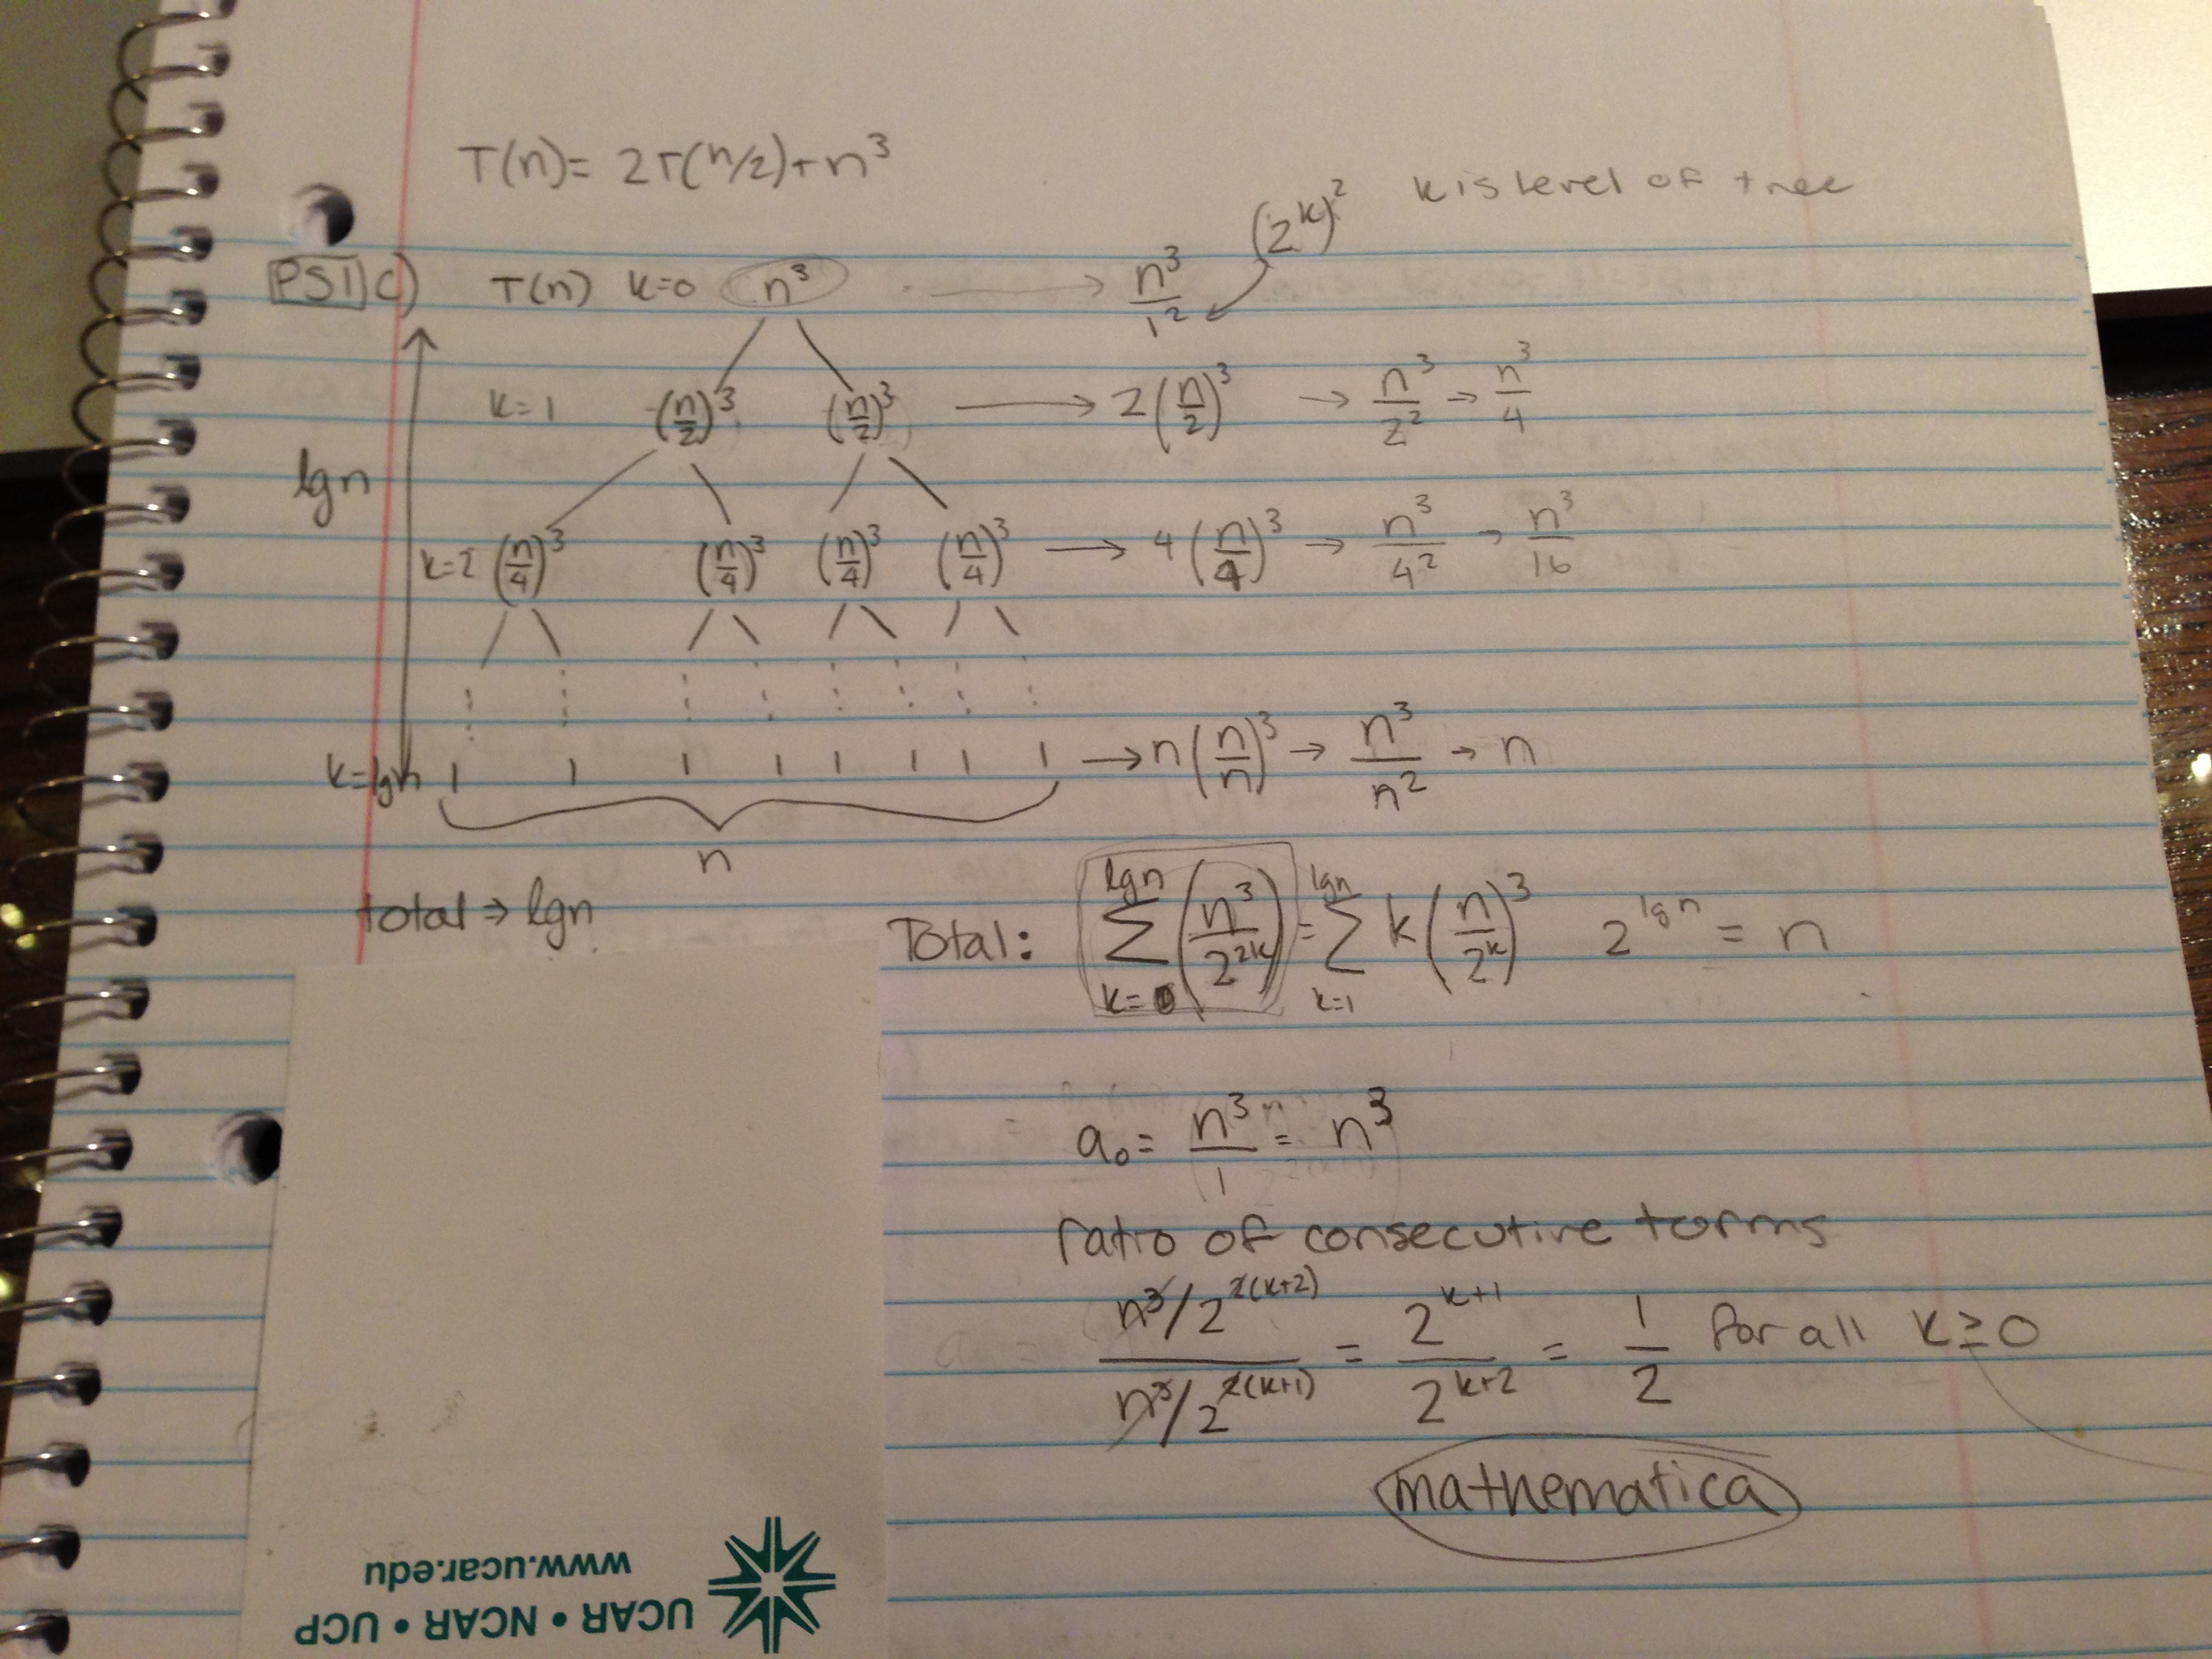 T(n)= 2T(n/2)+n³
(2^k)² k is level of tree
PS1 c) T(n) k=0 n³ → n³/1²
k=1 (n/2)³ (n/2)³ → 2(n/2)³ → n³/2² → n³/4
lgn
k=2 (n/4)³ (n/4)³ (n/4)³ (n/4)³ → 4(n/4)³ → n³/4² → n³/16
k=lgn 1 1 1 1 1 1 1 1 → n(n/n)³ → n³/n² → n
n
total ⇒ lgn
Total: ∑_{k=0}^{lgn} (n³/2^{2k}) = ∑_{k=1}^{lgn} k(n/2^k)³ 2^{lgn} = n
a₀ = n³/1 = n³
ratio of consecutive terms
(n³/2^{2(k+2)})/(n³/2^{2(k+1)}) = 2^{k+1}/2^{k+2} = 1/2 for all k≥0
mathematica
UCAR • NCAR • UCP
www.ucar.edu